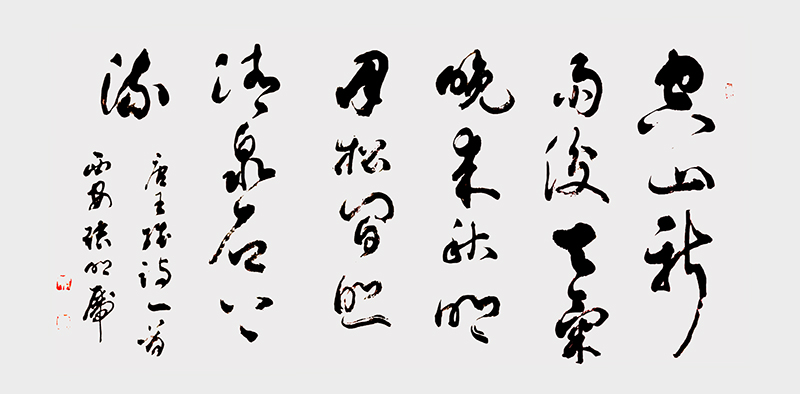 空山新
雨後天氣
晚来秋明
月松间照
清泉石上
流
唐王维诗一首
西安张明虎